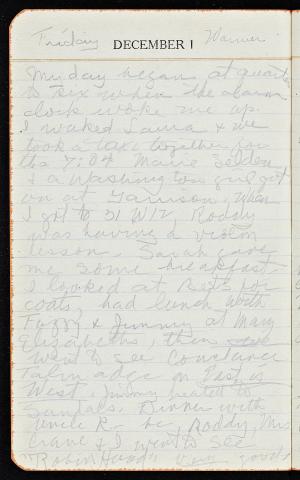 Friday Warmer
DECEMBER 1
My day began at quarter
to six when the alarm
clock woke me up.
I waked Laura & we
took a taxi together for
the 7:04. Marie Selden
& a Washington girl got
on at Garrison. When
I got to 31 W 12 Roddy
was having a violin
lesson. Sarah gave
me some breakfast.
I looked at Best's for
coats, had lunch with
Fuzzy & Jimmy at Mary
Elizabeth's, then
went to see Constance
Talmadge in East is
West. Jimmy treated to
Sundaes. Dinner with
Uncle R. he, Roddy, Mrs
Crane & I went to see
"Robin Hood" Very good